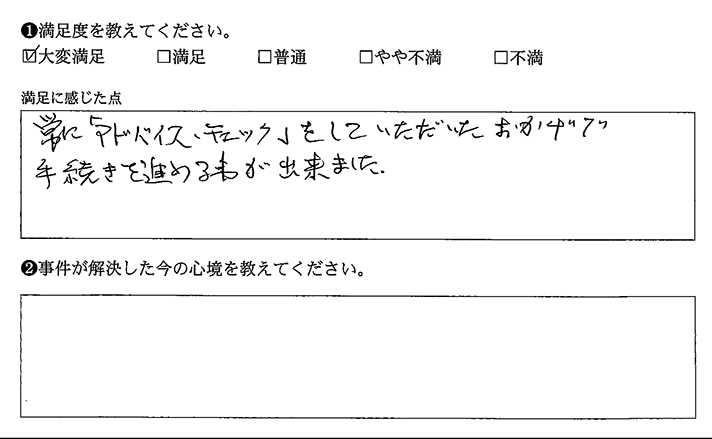 ❶満足度を教えてください。
☑大変満足 □満足 □普通 □やや不満 □不満
満足に感じた点
常に「アドバイス、チェック」をしていただいたおかげで
手続きを進める事が出来ました.
❷事件が解決した今の心境を教えてください。